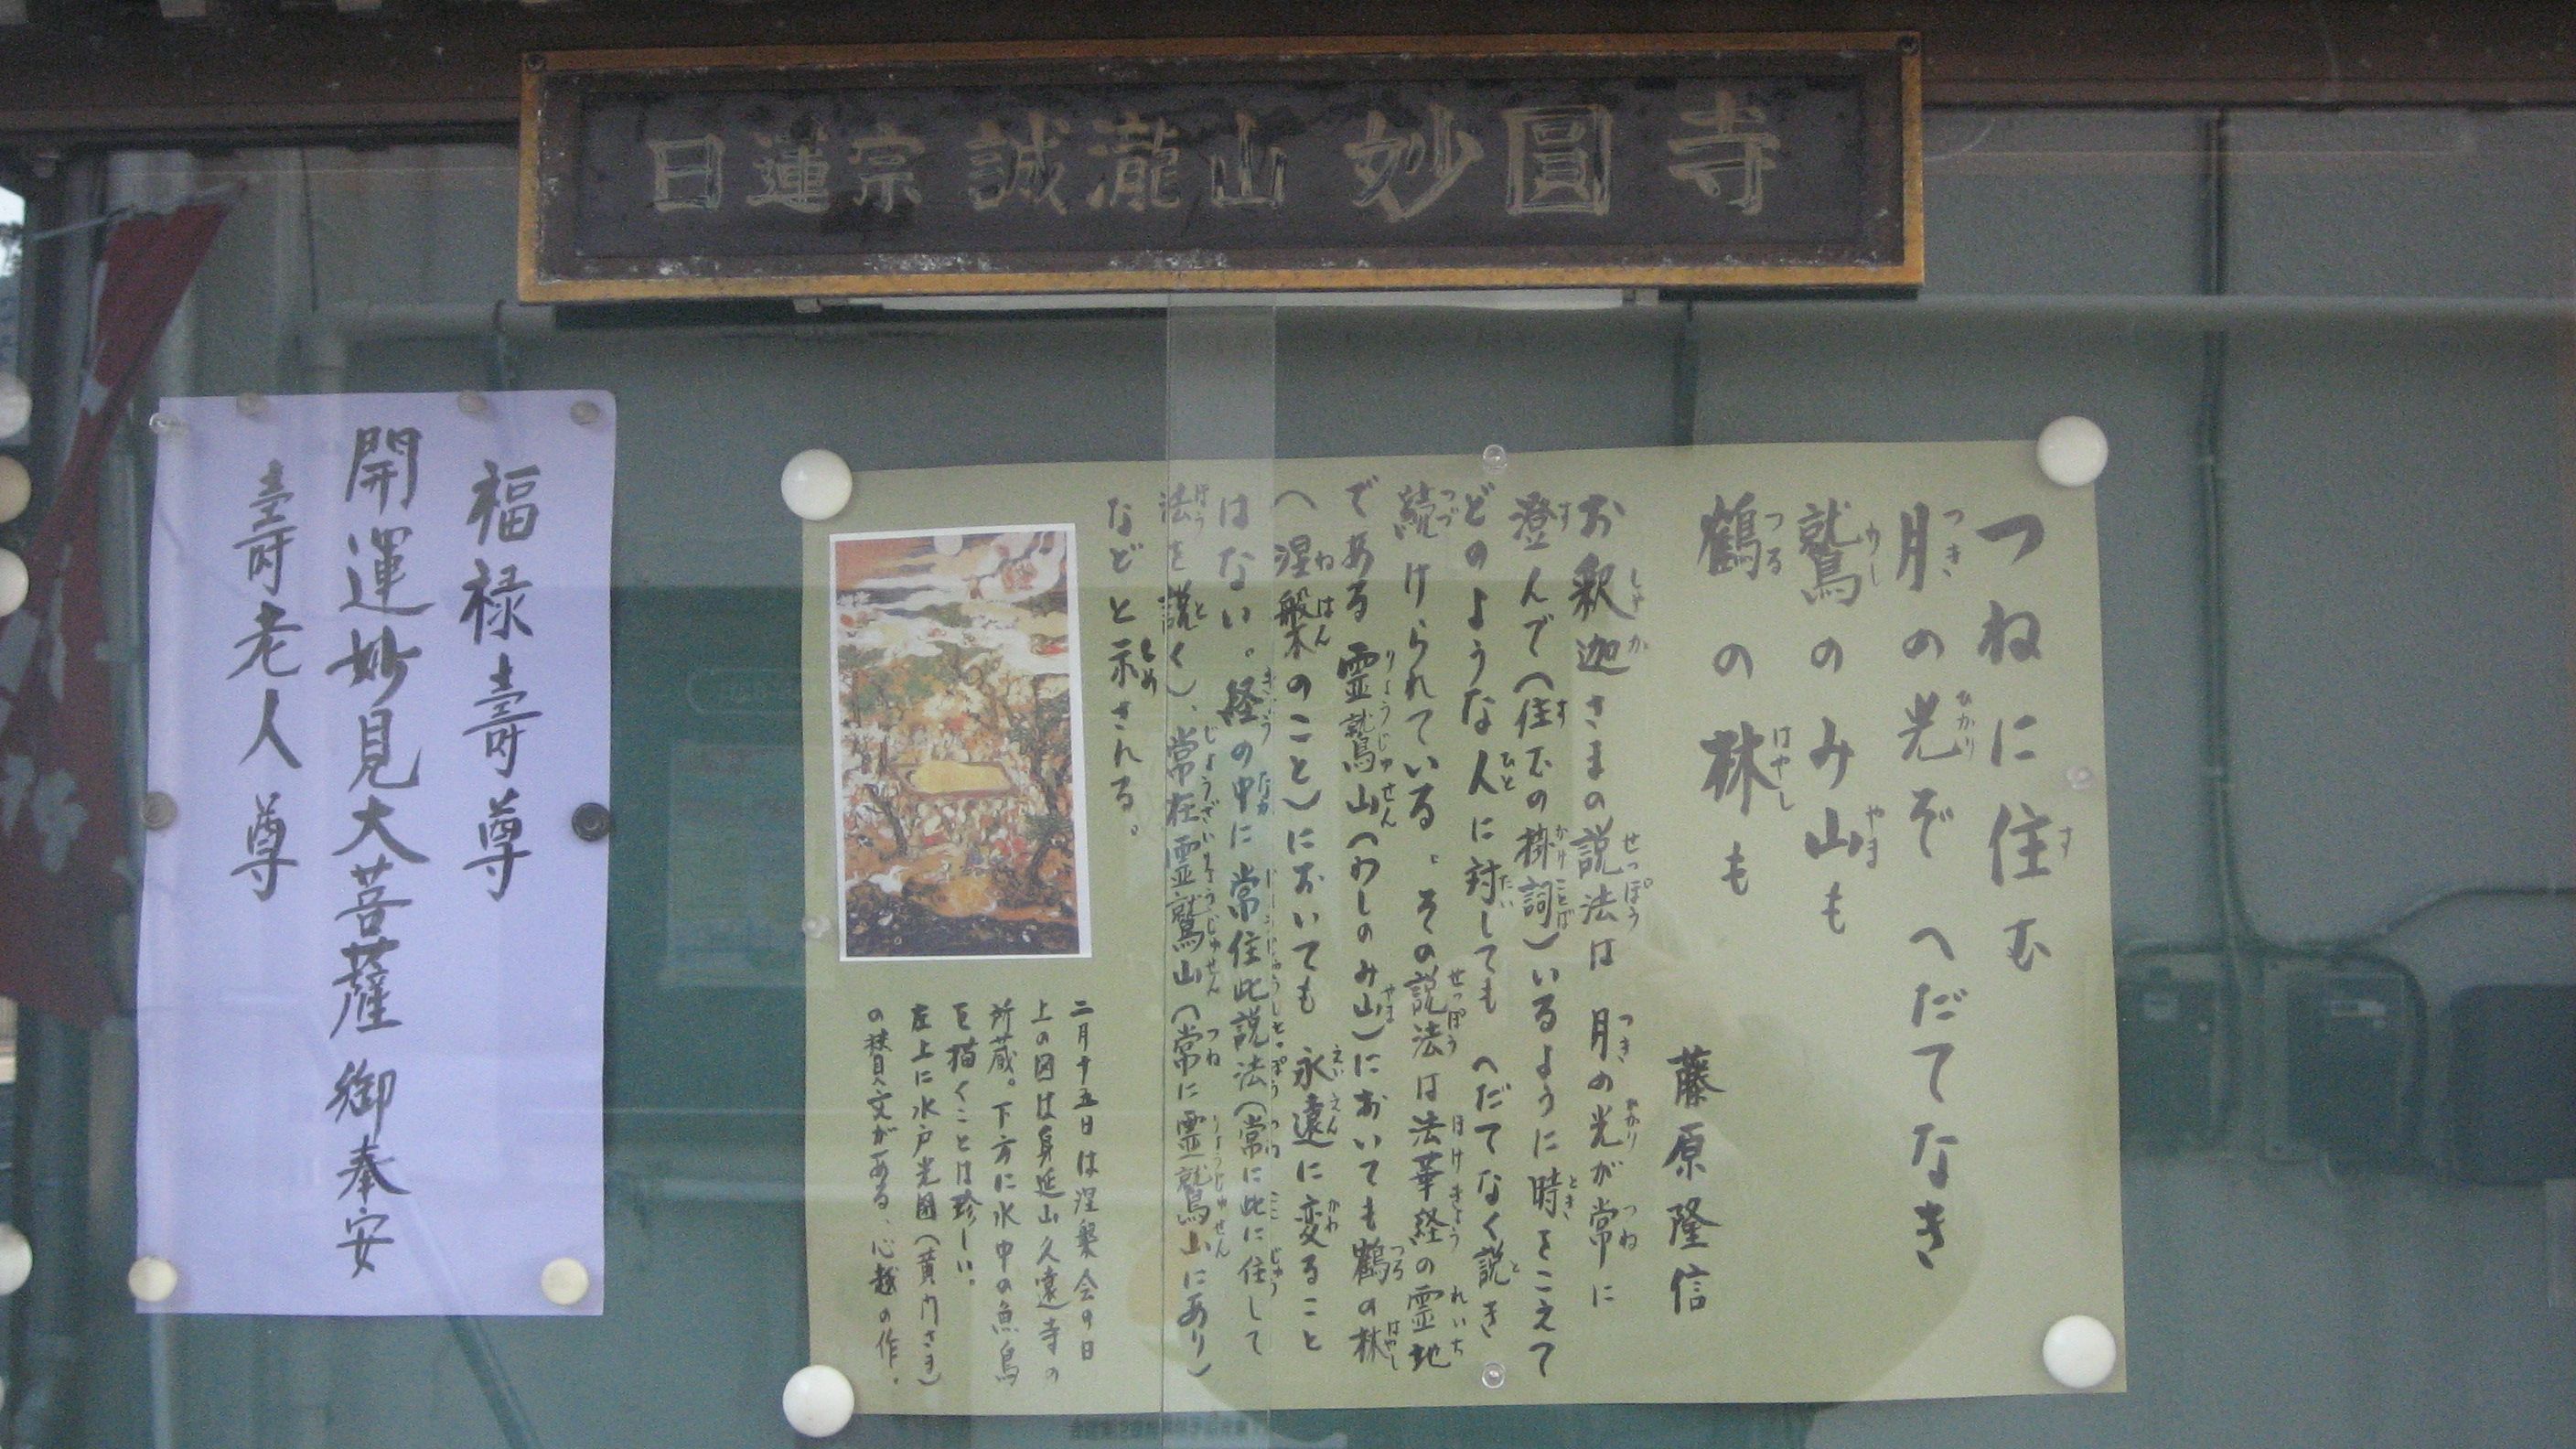 日蓮宗 誠瀧山 妙圓寺
つねに住む
月の光ぞ へだてなき
鷲のみ山も
鶴の林も
藤原隆信
お釈迦さまの説法は 月の光が常に
澄んで(住むの掛詞)いるように時をこえて
どのような人に対しても へだてなく説き
続けられている。その説法は法華経の霊地
である霊鷲山(わしのみ山)においても鶴の林
(涅槃のこと)においても 永遠に変ること
はない。経の中に常住此説法(常に此に住して
法を説く)、常在霊鷲山(常に霊鷲山にあり)
などと示される。
二月十五日は涅槃会の日
上の図は身延山久遠寺の
所蔵。下方に水中の魚鳥
を描くことは珍しい。
左上に水戸光圀(黄門さま)
の賛文がある、心越の作。
福禄壽尊
開運妙見大菩薩 御奉安
壽老人尊